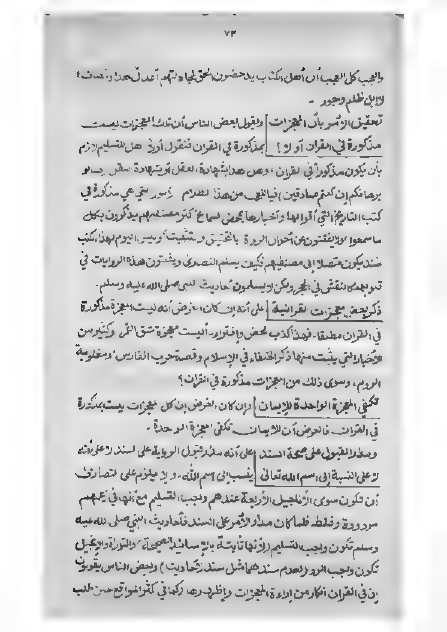 ٧٣
والعجب كل العجب أن أهل الكتاب يدحضون الحق بمجادلتهم أعدل هذا ونصاف؟
لا بل ظلم وجور.
تحقيق الأمر بأن المعجزات ويقول بعض الناس أن تلك المعجزات ليست
مذكورة في القران أو لا؟ بمذكورة في القران فنقول أولا هل للتسليم لازم
بأن يكون مذكورا في القران، وهل هذا بشهادة العقل أو بشهادة نقل
برهانكم إن كنتم صادقين فيا للعجب من هذا أمور ستى هي مذكورة في
كتب التاريخ التي أقوالها وأخبارها بمحض سماع أكثر مصنفيهم مذكورون بكل
ما سمعوا ولا يفتشون عن أحوال الرواة بالتحقيق وليس اليوم لهذا كتب
سند يكون متصلا إلى مصنفيهم فكيف يسلم النصارى ويثبتون هذه الروايات في
قلوبهم كالنقش في الحجر ولكن لا يسلمون أحاديث النبي صلى الله عليه وسلم.
ذكر بعض معجزات القرانية على أنه إن كان الغرض أنه ليست المعجزة مذكورة
في القران مطلقا، فهذا كذب محض وافتراء. أليست معجزة شق القمر وكثير من
الأخبار التي يثبت منها ذكر الخلفاء في الإسلام وقصة حرب الفارس ومغلوبية
الروم، وسوى ذلك من المعجزات مذكورة في القران؟
تكفي المعجزة الواحدة للإيمان وإن كان الغرض إن كل معجزات ليست بمذكورة
في القران فالغرض أن للإيمان تكفي المعجزة الواحدة.
ومدار القبول على صحة السند على أنه مدار قبول الرواية على السند لا على أنه
لا على النسبة إلى اسم الله تعالى ينسب إلى اسم الله. ولا يلزم على النصارى
أن تكون سوى الأناجيل الأربعة عندهم واجب التسليم مع أنها في زعمهم
مردودة وغلط فلما كان مدار الأمر على السند فأحاديث النبي صلى الله عليه
وسلم تكون واجب التسليم (لأنها ثابتة بالأسانيد الصحيحة) والتوراة والإنجيل
تكون واجب الرد (لعدم سندهما مثل سند الأحاديث) وبعض الناس يقولون
إن في القران أنكار من إراءة المعجزات وإظهارها كما في أكثر المواقع حين طلب